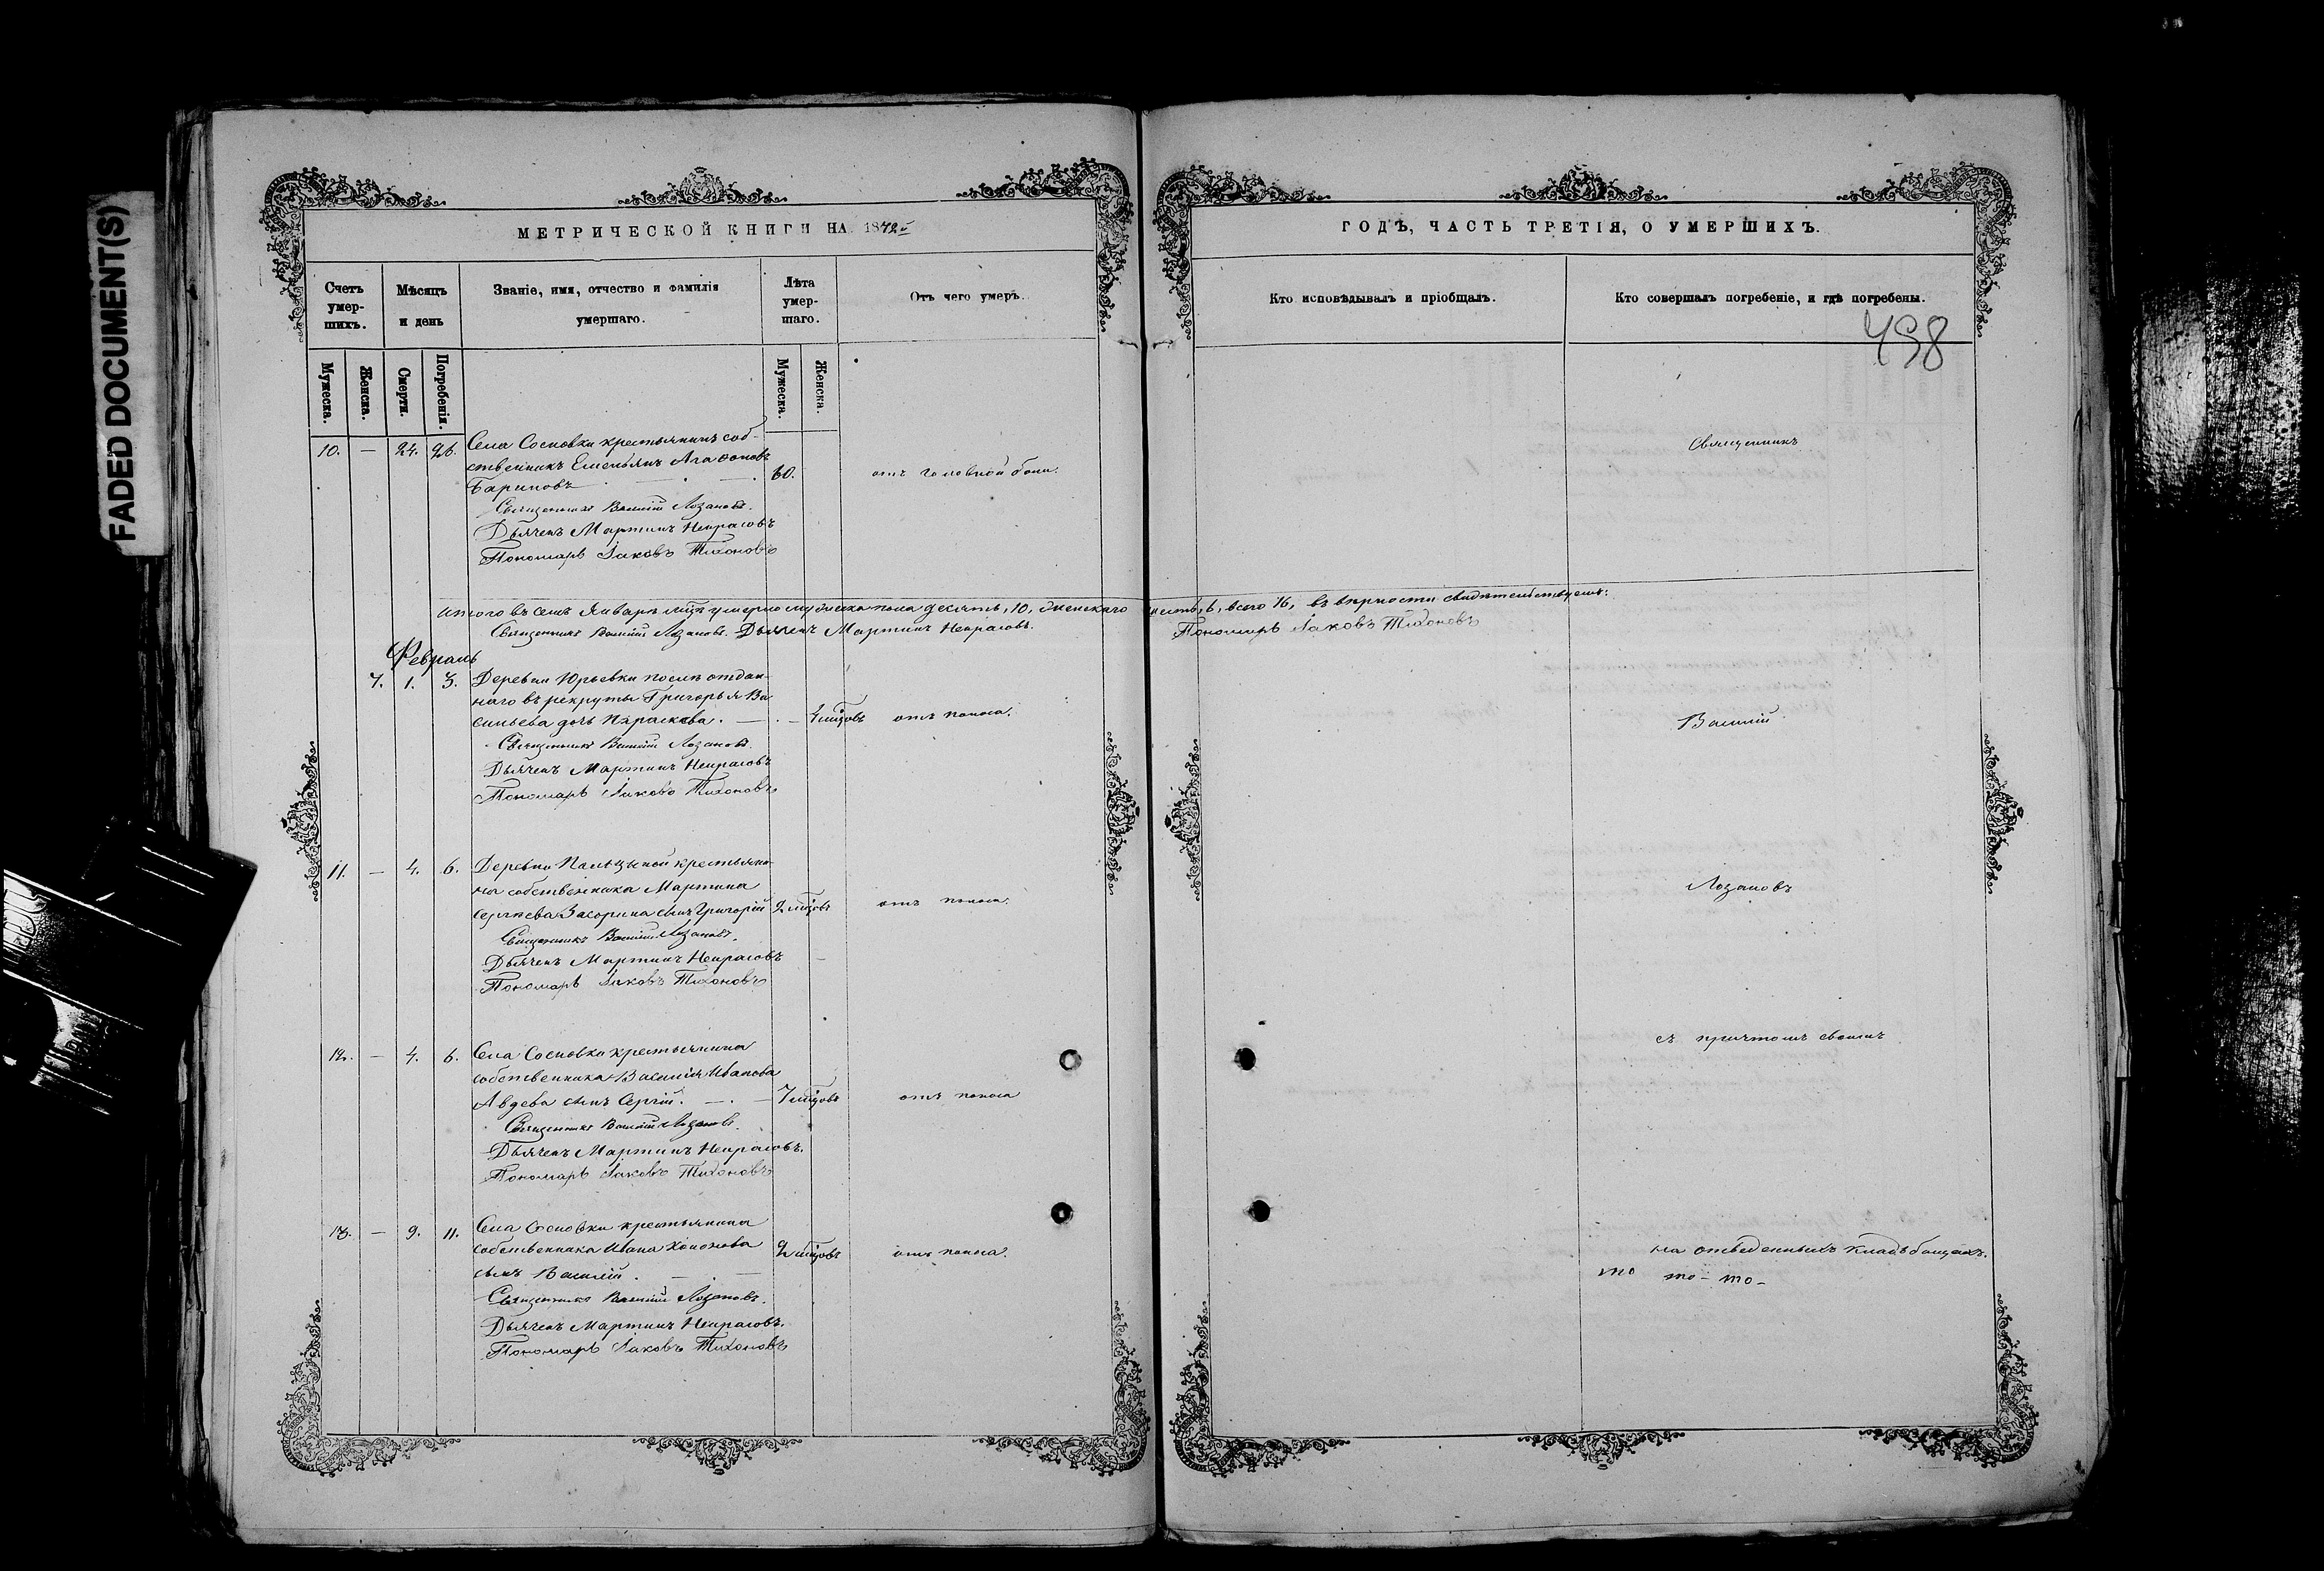 FADED DOCUMENT(S)
МЕТРИЧЕСКОЙ КНИГИ НА 1872й
Счетъ умер-шихъ.
Мѣсяцъ и день
Званіе, имя, отчество и фамилія умершаго.
Лѣта умер-шаго.
Отъ чего умеръ.
Мужеска.
Женска.
Смерти.
Погребенія.
Мужеска.
Женска.
10. — 24. 26. Села Сосновки крестьянинъ соб-
ственникъ Емельянъ Агафоновъ
Бариновъ 60. отъ головной боли.
Священникъ Василій Лозановъ.
Дьячекъ Мартинъ Некрасовъ
Пономарь Іаковъ Тихоновъ
Итого въ семъ Январѣ мцѣ умерло мужеска пола десять, 10, женскаго шесть, 6, всего 16, въ вѣрности свидѣтельствуемъ:
Священникъ Василій Лозановъ. Дьячекъ Мартинъ Некрасовъ. Пономарь Іаковъ Тихоновъ
Февраль
7. 1. 3. Деревни Юрьевки послѣ отдан-
наго въ рекруты Григорья Ва
сильева дочь Параскева. — 4 мцовъ отъ поноса.
Священникъ Василій Лозановъ.
Дьячекъ Мартинъ Некрасовъ
Пономарь Іаковъ Тихоновъ
11. — 4. 6. Деревни крестьяни-
на собственника Мартина
Сергѣева Засорина сынъ Григорій 2 мцовъ отъ поноса.
Священникъ Василій Лозановъ.
Дьячекъ Мартинъ Некрасовъ
Пономарь Іаковъ Тихоновъ
12. — 4. 6. Села Сосновки крестьянина
собственника Василія Иванова
Авдева сынъ Сергій. — 7 мцовъ отъ поноса
Священникъ Василій Лозановъ.
Дьячекъ Мартинъ Некрасовъ.
Пономарь Іаковъ Тихоновъ
13. — 9. 11. Села Сосновки крестьянина
собственника Ивана
сынъ Василій. — 2 мцовъ отъ поноса.
Священникъ Василій Лозановъ.
Дьячекъ Мартинъ Некрасовъ.
Пономарь Іаковъ Тихоновъ
ГОДЪ, ЧАСТЬ ТРЕТІЯ, О УМЕРШИХЪ.
Кто исповѣдывалъ и пріобщалъ.
Кто совершалъ погребеніе, и гдѣ погребены.
498
Священникъ
Василій
Лозановъ
съ причтомъ своимъ
на отведенныхъ кладбищахъ.
то то - то -